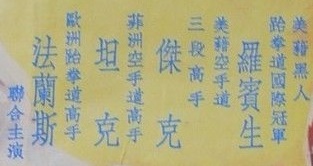 美籍黑人
跆拳道國際冠軍
羅賓生
美籍空手道
三段高手
傑克
菲洲空手道高手
坦克
歐洲跆拳道高手
法蘭斯
聯合主演